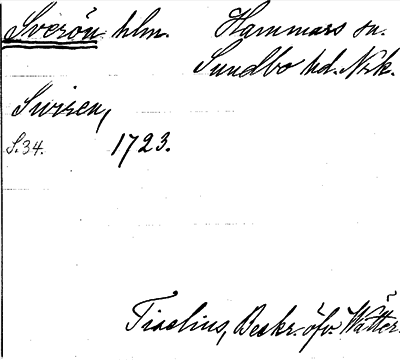 Sverön hlm. Hammars sn.
Sundbo hd. Nrk.
Swisen,
S. 34. 1723.
Tiselius, Beskr. öfv. Wätter.